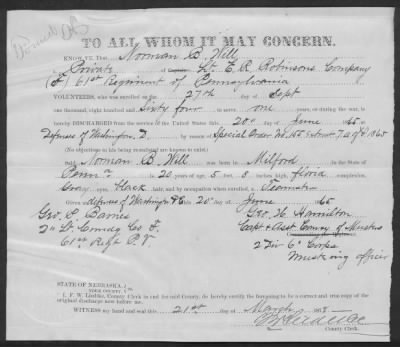 TO ALL WHOM IT MAY CONCERN.
KNOW YE, That Norman B. Will
a Private of Captain Lt. E. R. Robinsons Company
(F) 61st Regiment of Pennsylvania
VOLUNTEERS, who was enrolled on the 27th day of Sept
one thousand, eight hundred and Sixty four to serve one years, or during the war, is
hereby DISCHARGED from the service of the United States this 20th day of June 65 at
Defenses of Washington D. by reason of Special Order No. 155
(No objections to his being reenlisted are known to exist)
said Norman B. Will was born in Milford in the State of
Penna is 20 years of age, 5 feet 8 inches high, florid complexion,
Gray eyes, black hair, and by occupation when enrolled, a Teamster
Given at defenses of Washington DC this 20th day of June 65
Geo. S. Barnes
2nd Lt Comdg Co F.
61st Regt P. V.
Geo. H. Hamilton
Capt & Asst Comsy of Musters
2 Div 6th Corps
Mustering Officer
STATE OF NEBRASKA,
COUNTY.
I, F. W. Liedtke, County Clerk in and for said County, do hereby certify the foregoing to be a correct and true copy of the
original discharge now before me.
WITNESS my hand and seal this 21st day of March 187
F W Liedtke
County Clerk.